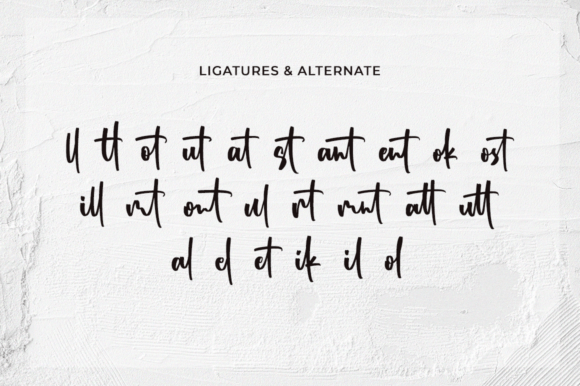 LIGATURES & ALTERNATE
ll tt ot ut at st ant ent ok ost
ill ont ul rt att utt
al el et ik il ol